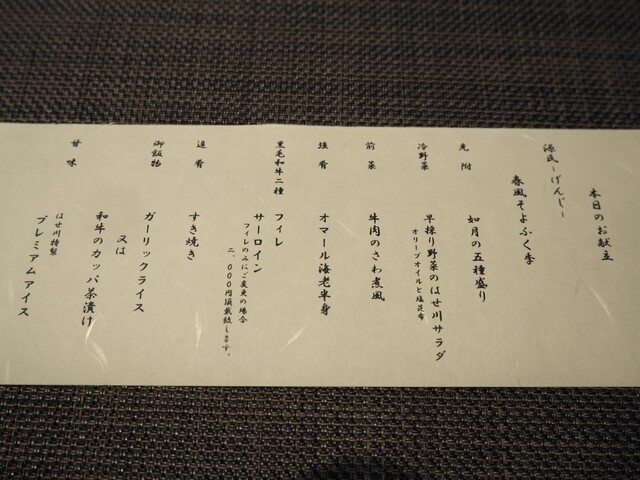 本日のお献立
源氏ーげんじー
春風そよふく季
先附
如月の五種盛り
冷野菜
早採り野菜のはせ川サラダ
オリーブオイルと塩昆布
前菜
牛肉のさわ煮風
強肴
オマール海老半身
黒毛和牛二種
フィレ
サーロイン
フィレのみにご変更の場合
二、〇〇〇円頂戴致します。
進肴
すき焼き
御飯物
ガーリックライス
又は
和牛のカッパ茶漬け
甘味
はせ川特製
プレミアムアイス